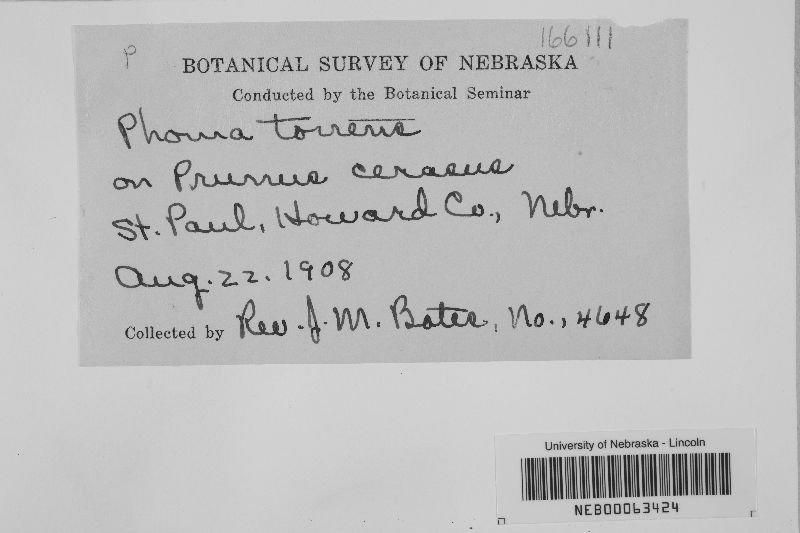 166111
P
BOTANICAL SURVEY OF NEBRASKA
Conducted by the Botanical Seminar
Phoma torrens
on Prunus cerasus
St. Paul, Howard Co., Nebr.
Aug. 22. 1908
Collected by Rev. J. M. Bates, No., 4648
University of Nebraska - Lincoln
NEB00063424